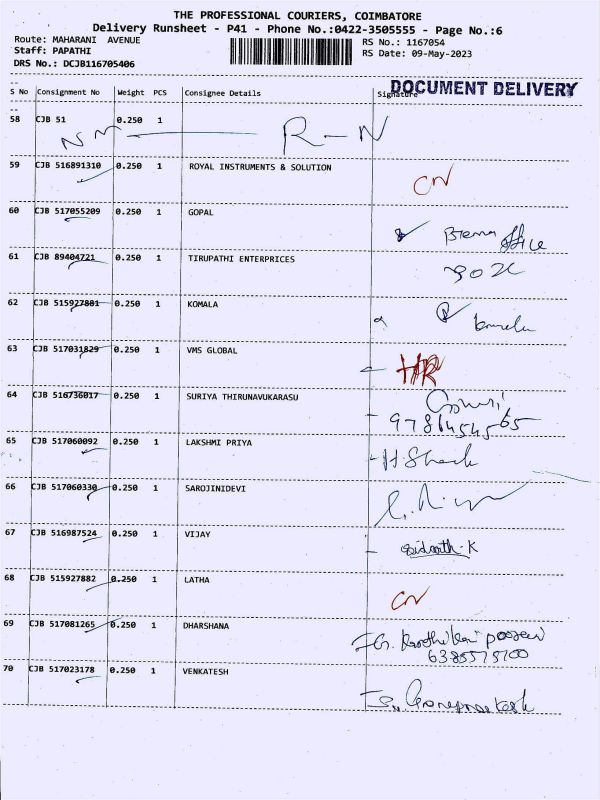 THE PROFESSIONAL COURIERS, COIMBATORE
Delivery Runsheet - P41 - Phone No.:0422-3505555 - Page No.:6
Route: MAHARANI AVENUE
Staff: PAPATHI
DRS No.: DCJB116705406
RS No.: 1167054
RS Date: 09-May-2023
DOCUMENT DELIVERY
S No Consignment No Weight PCS Consignee Details Signature
58 CJB 51 0.250 1 R-N
59 CJB 516891310 0.250 1 ROYAL INSTRUMENTS & SOLUTION CN
60 CJB 517055209 0.250 1 GOPAL office
61 CJB 89404721 0.250 1 TIRUPATHI ENTERPRICES
62 CJB 515927881 0.250 1 KOMALA
63 CJB 517031829 0.250 1 VMS GLOBAL HR
64 CJB 516736017 0.250 1 SURIYA THIRUNAVUKARASU
65 CJB 517060092 0.250 1 LAKSHMI PRIYA
66 CJB 517060330 0.250 1 SAROJINIDEVI
67 CJB 516987524 0.250 1 VIJAY
68 CJB 515927882 0.250 1 LATHA CN
69 CJB 517081265 0.250 1 DHARSHANA
70 CJB 517023178 0.250 1 VENKATESH